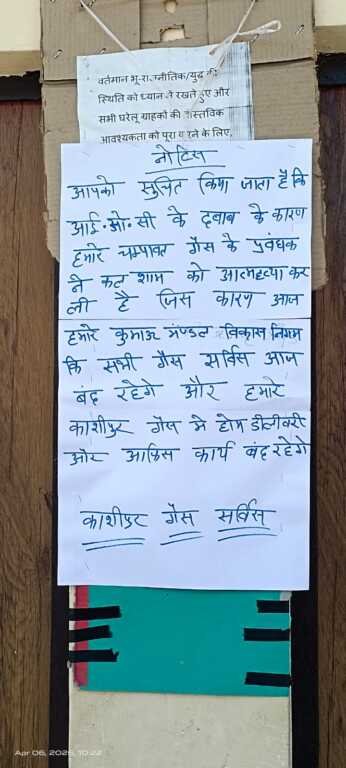 वर्तमान भू-राजनीतिक/युद्ध की
स्थिति को ध्यान में रखते हुए और
सभी घरेलू ग्राहकों की वास्तविक
आवश्यकता को पूरा करने के लिए,
नोटिस
आपको सुचित किया जाता है कि
आई.ओ.सी के दबाब के कारण
हमारे चम्पावत गैस के प्रबंधक
ने कल शाम को आत्महत्या कर
ली है जिस कारण आज
हमारे कुमाऊ मण्डल विकास निगम
कि सभी गैस सर्विस आज
बंद रहेगे और हमारे
काशीपुर गैस मे होम डीलीवरी
ओर आफिस कार्य बंद रहेगे
काशीपुर गैस सर्विस
Apr 06, 2026, 10:22